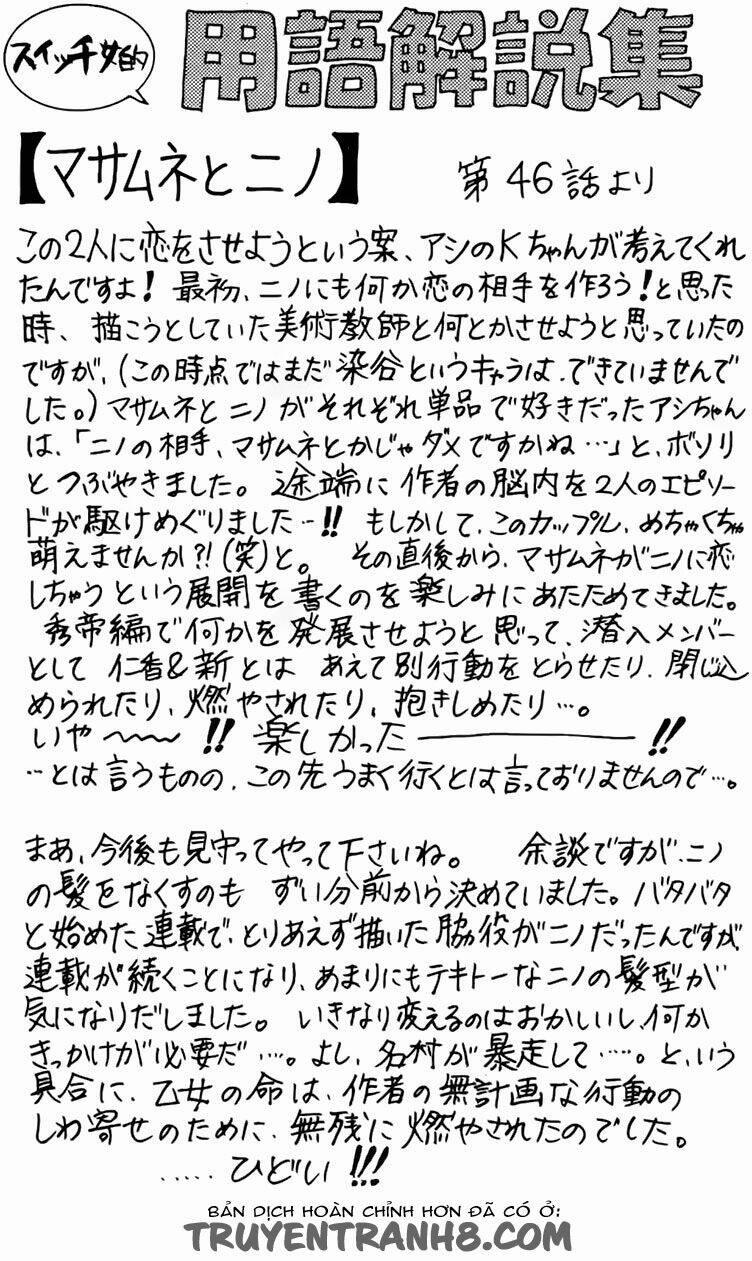 スイッチ女的
用語解説集
【マサムネとニノ】 第46話より
この2人に恋をさせようという案、アシのKちゃんが考えてくれ
たんですよ！最初、ニノにも何か恋の相手を作ろう！と思った
時、描こうとしていた美術教師と何とかさせようと思っていたの
ですが、(この時点ではまだ染谷というキャラは、できていませんで
した。)マサムネとニノがそれぞれ単品で好きだったアシちゃん
は、「ニノの相手、マサムネとかじゃダメですかね…」と、ボソリ
とつぶやきました。途端に作者の脳内を2人のエピソー
ドが駆けめぐりました…!! もしかして、このカップル、めちゃくちゃ
萌えませんか?!(笑)と。 その直後から、マサムネがニノに恋
しちゃうという展開を書くのを楽しみにあたためてきました。
秀帝編で何かを発展させようと思って、潜入メンバー
として仁香&新とは あえて別行動をとらせたり、閉じ込
められたり、燃やされたり、抱きしめたり…。
いや〜〜〜!! 楽しかった――――!!
…とは言うものの、この先うまく行くとは言っておりませんので…。
まあ、今後も見守ってやって下さいね。 余談ですが、ニノ
の髪をなくすのも ずい分前から決めていました。バタバタ
と始めた連載で、とりあえず描いた脇役がニノだったんですが、
連載が続くことになり、あまりにもテキトーなニノの髪型が
気になりだしました。 いきなり変えるのはおかしいし、何か
きっかけが必要だ…。よし、名村が暴走して……。と、いう
具合に、乙女の命は、作者の無計画な行動の
しわ寄せのために、無残に燃やされたのでした。
……ひどい!!!
BẢN DỊCH HOÀN CHỈNH HƠN ĐÃ CÓ Ở:
TRUYENTRANH8.COM